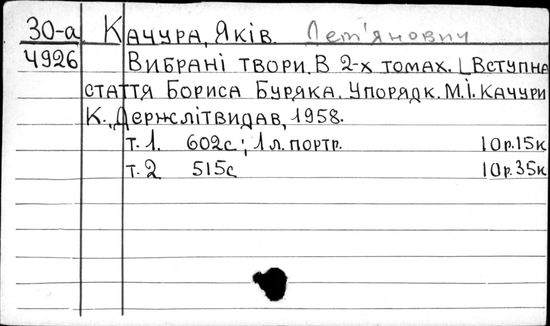 30-а Качура, Яків. Дем'янович
4926 Вибрані твори. В 2-х томах. [Вступна
стаття Бориса Буряка. Упорядк. М.І. Качури
К., Держлітвидав, 1958.
т. 1. 602с; 1 л. портр. 10р.15к
т. 2 515с 10р.35к